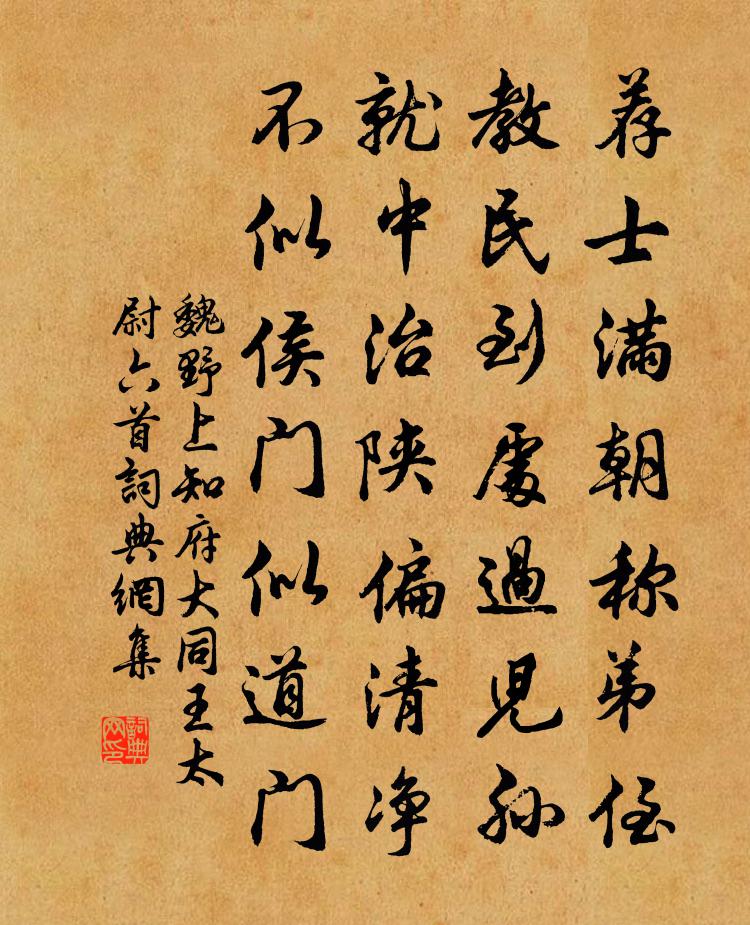 荐士满朝称弟侄
教民到处過児孙
就中治陕偏清净
不似侯门似道门
魏野上知府大同王太
尉六首詞典網集
詞典网印